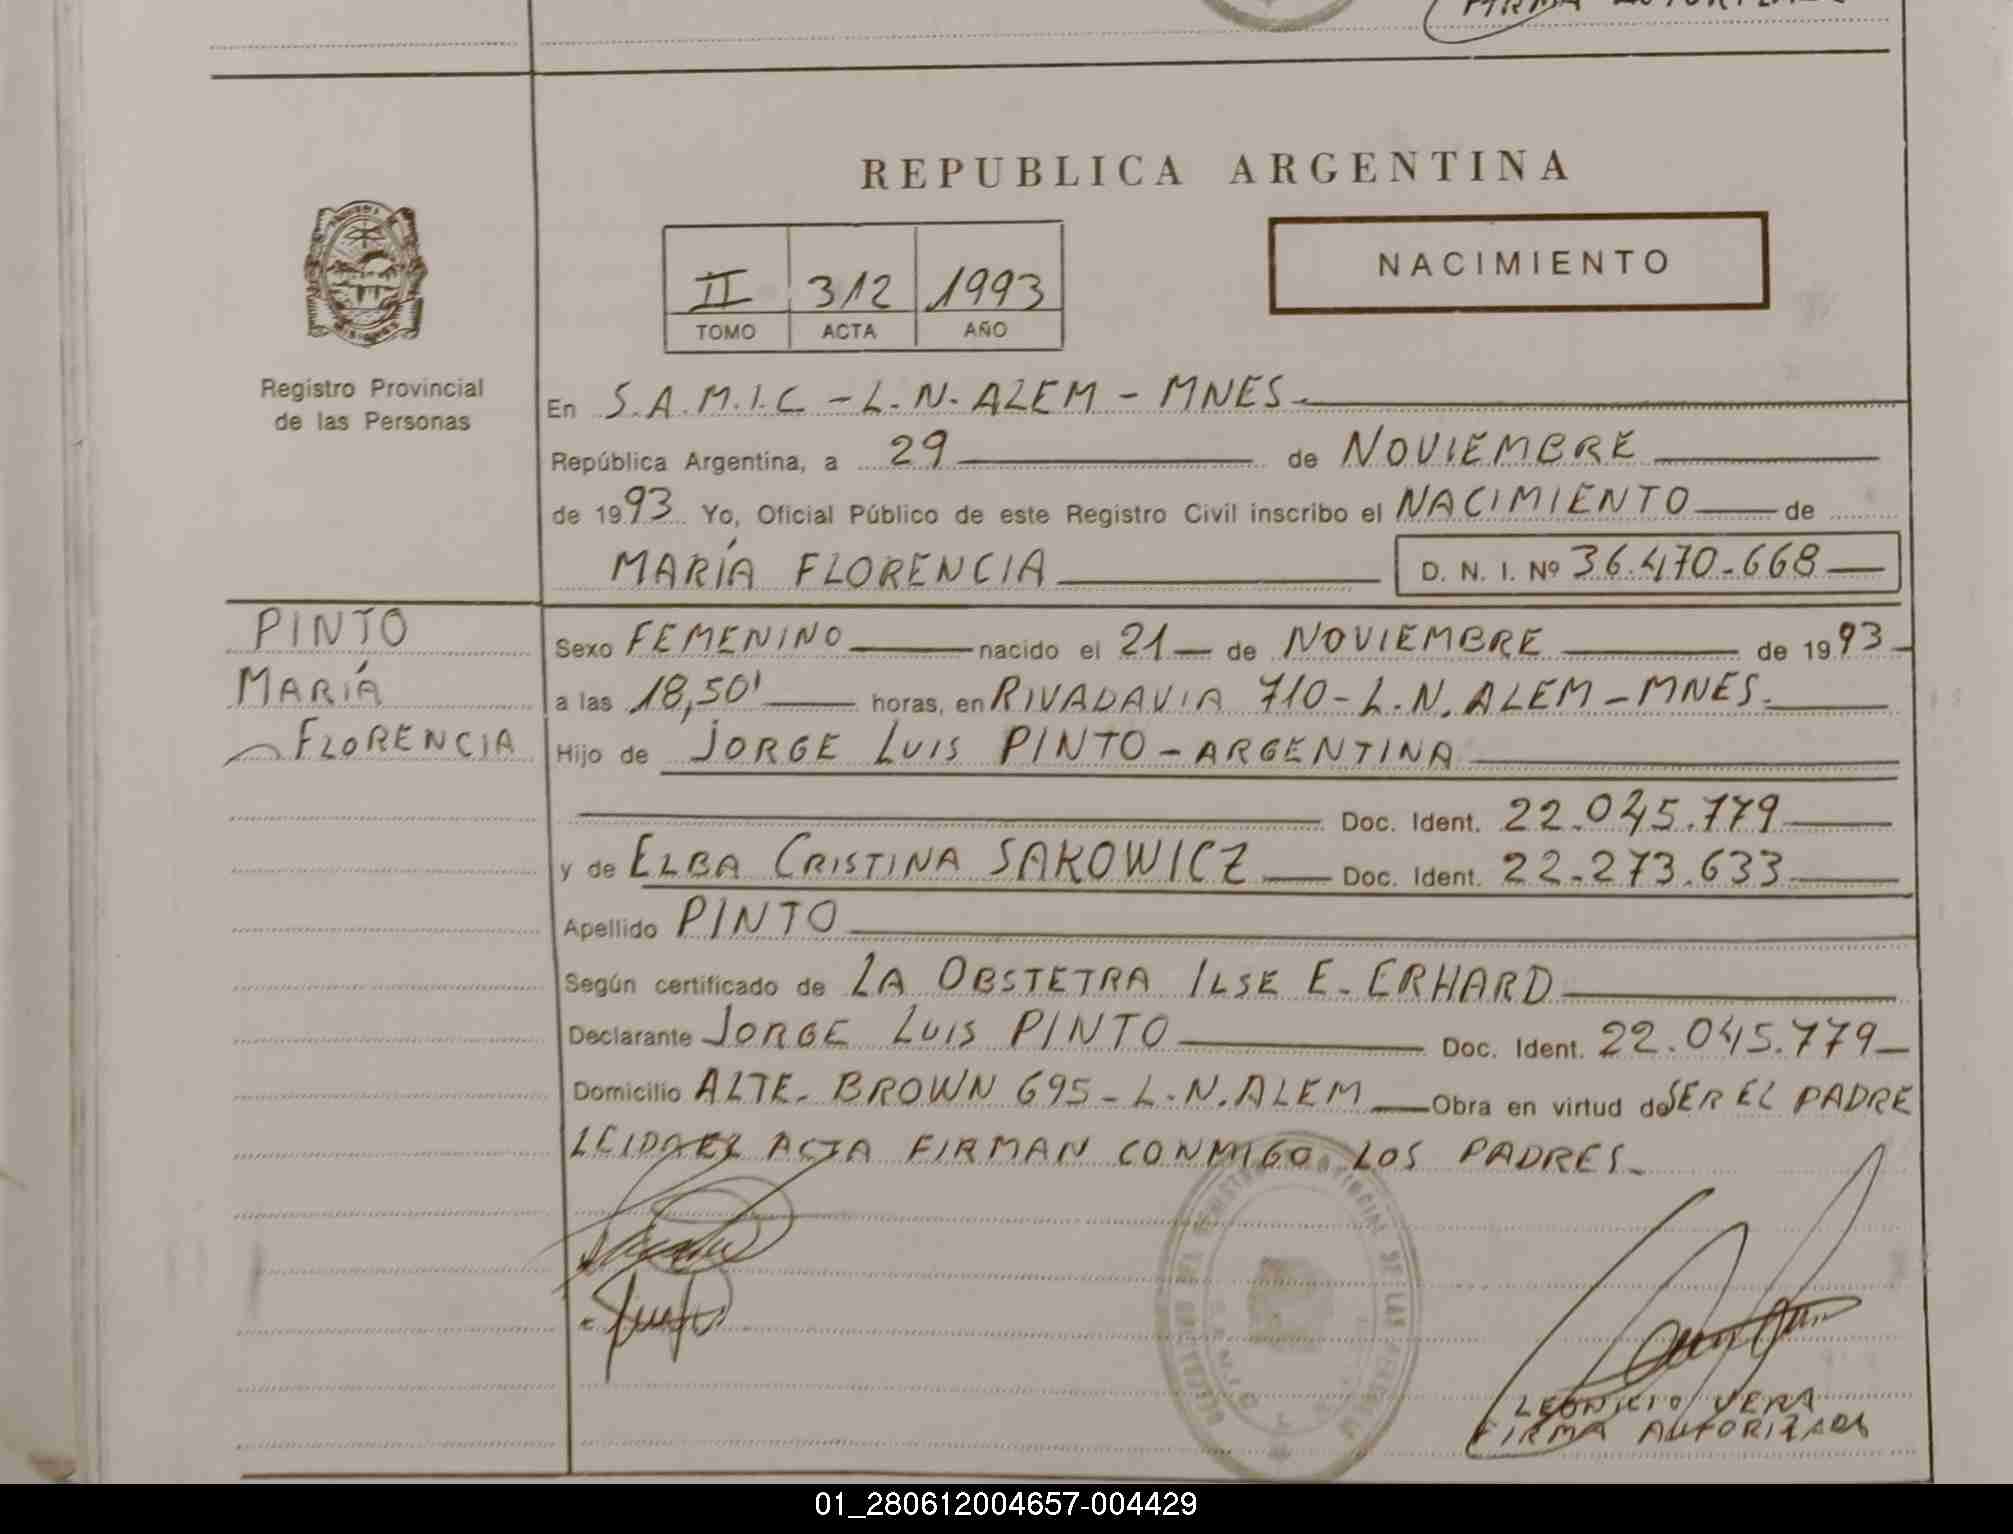 REPUBLICA ARGENTINA
II 312 1993
TOMO ACTA AÑO
NACIMIENTO
Registro Provincial
de las Personas
En S.A.M.I.C - L.N. ALEM - MNES.
República Argentina, a 29 de NOVIEMBRE
de 1993 Yo, Oficial Público de este Registro Civil inscribo el NACIMIENTO de
MARÍA FLORENCIA D. N. I. Nº 36.470.668
PINTO
MARÍA
FLORENCIA
Sexo FEMENINO nacido el 21 de NOVIEMBRE de 1993
a las 18,50' horas, en RIVADAVIA 710 - L.N. ALEM - MNES.
Hijo de JORGE LUIS PINTO - ARGENTINA
Doc. Ident. 22.045.779
y de ELBA CRISTINA SAKOWICZ Doc. Ident. 22.273.633
Apellido PINTO
Según certificado de LA OBSTETRA ILSE E. ERHARD
Declarante JORGE LUIS PINTO Doc. Ident. 22.045.779
Domicilio ALTE. BROWN 695 - L.N. ALEM Obra en virtud de SER EL PADRE
LEIDA EL ACTA FIRMAN CONMIGO LOS PADRES.
VERA
FIRMA AUTORIZADA
01_280612004657-004429